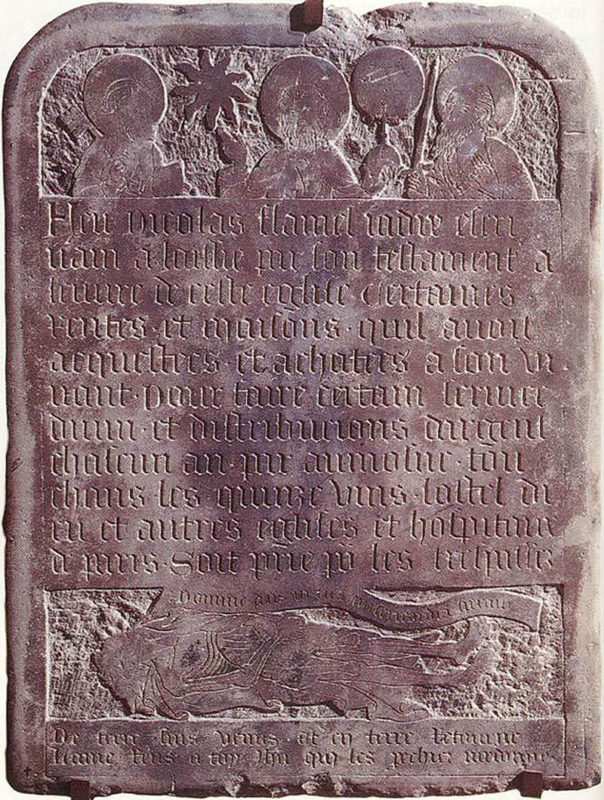 Feu nicolas flamel iadis escri
uain a laissie par son testament a
leuure de ceste eglise certaines
rentes et maisons · quil auoit
acquestees et achatees a son vi
uant · pour faire certain seruice
diuin · et distribucions dargent
chascun an · par aumosne · tou
chans les quinze vins · lostel di
eu et autres eglises et hospitaux
de paris · Soit prie po les trespassez
Domine deus in tua misericordia speraui
De terre suis venus et en terre retourne
Lame rens a toy ihu qui les pechiez pardonne